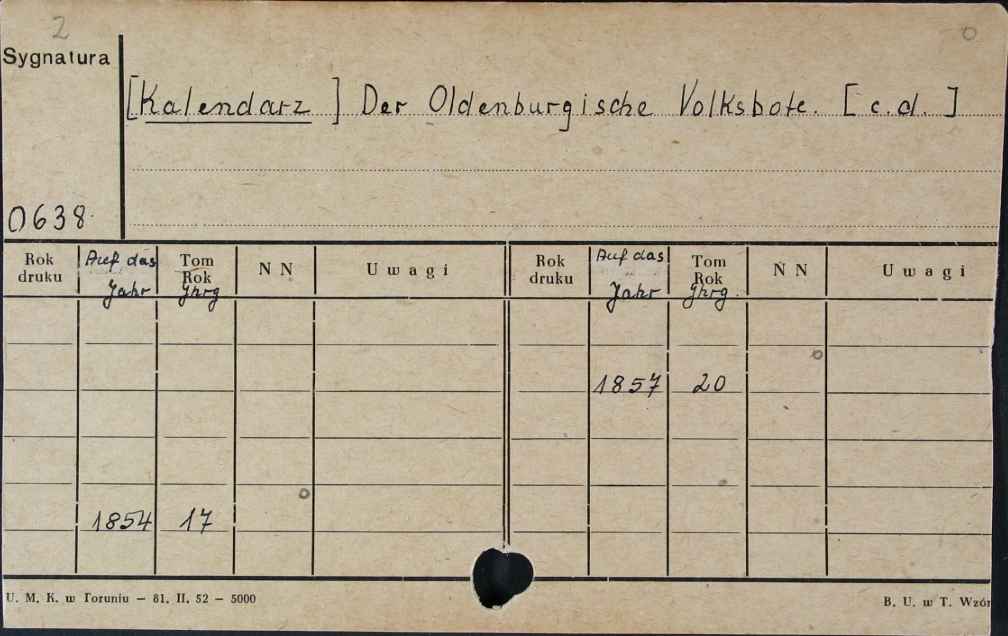 2
0
Sygnatura
[Kalendarz] Der Oldenburgische Volksbote. [c.d.]
0638
Rok druku
Auf das Jahr
Tom Rok Jhrg
N N
Uwagi
Rok druku
Auf das Jahr
Tom Rok Jhrg.
N N
Uwagi
1857 20
1854 17
U. M. K. w Toruniu – 81. II. 52 – 5000
B. U. w T. Wzór